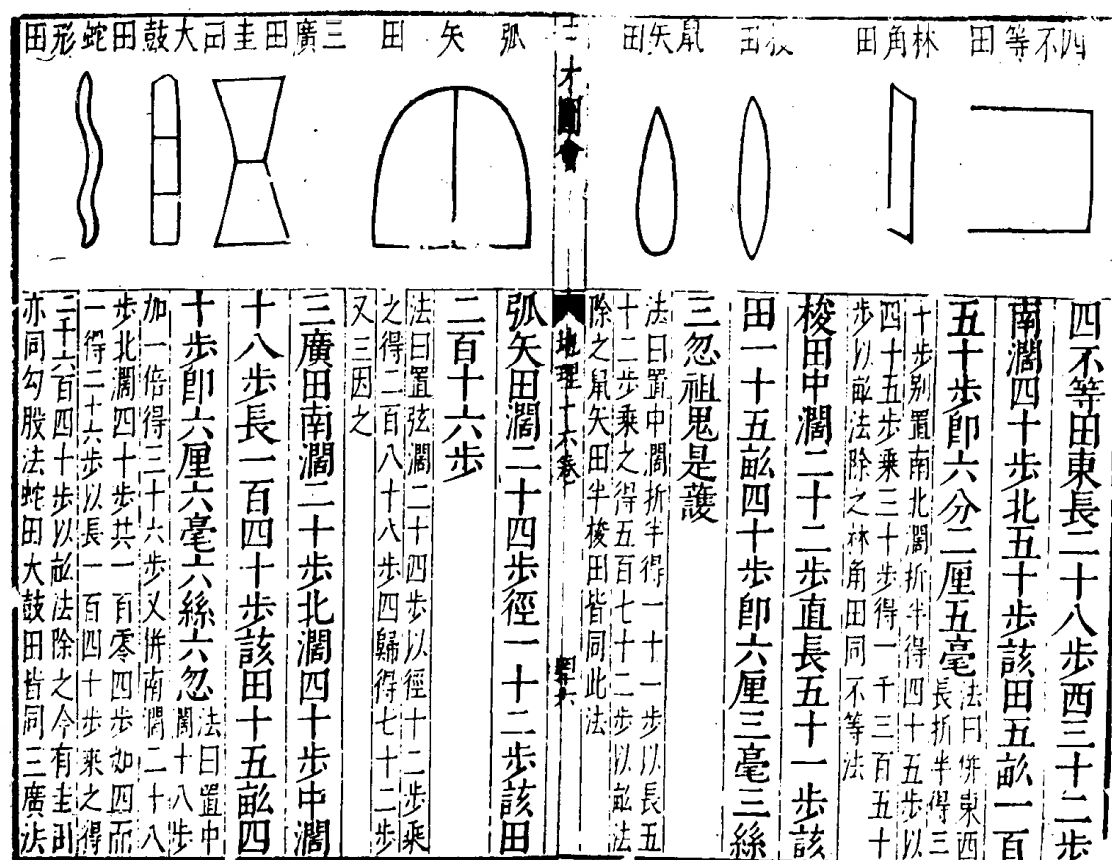 四不等田
林角田
梭田
鼠矢田
四不等田東長二十八步西三十二步
南濶四十步北五十步該田五畝一百
五十步即六分二厘五毫
法曰併東西
長折半得三
十步别置南北濶折半得四十五步以
四十五步乘三十步得一千三百五十
步以畝法除之林角田同不等法
梭田中濶二十二步直長五十一步該
田一十五畝四十步即六厘三毫三絲
三忽祖鬼是護
法曰置中濶折半得一十一步以長五
十二步乘之得五百七十二步以畝法
除之鼠矢田半梭田皆同此法
三才圖會
地理十六卷
弧矢田
三廣田
圭田
大鼓田
蛇形田
弧矢田濶二十四步徑一十二步該田
二百十六步
法曰置弦濶二十四步以徑十二步乘
之得二百八十八步四歸得七十二步
又三因之
三廣田南濶二十步北濶四十步中濶
十八步長一百四十步該田十五畝四
十步即六厘六毫六絲六忽
法曰置中
濶十八步
加一倍得三十六步又併南濶二十八
步北濶四十步共一百零四步如四而
一得二十六步以長一百四十步乘之得
二千六百四十步以畝法除之今有圭田
亦同勾股法蛇田大鼓田皆同三廣法